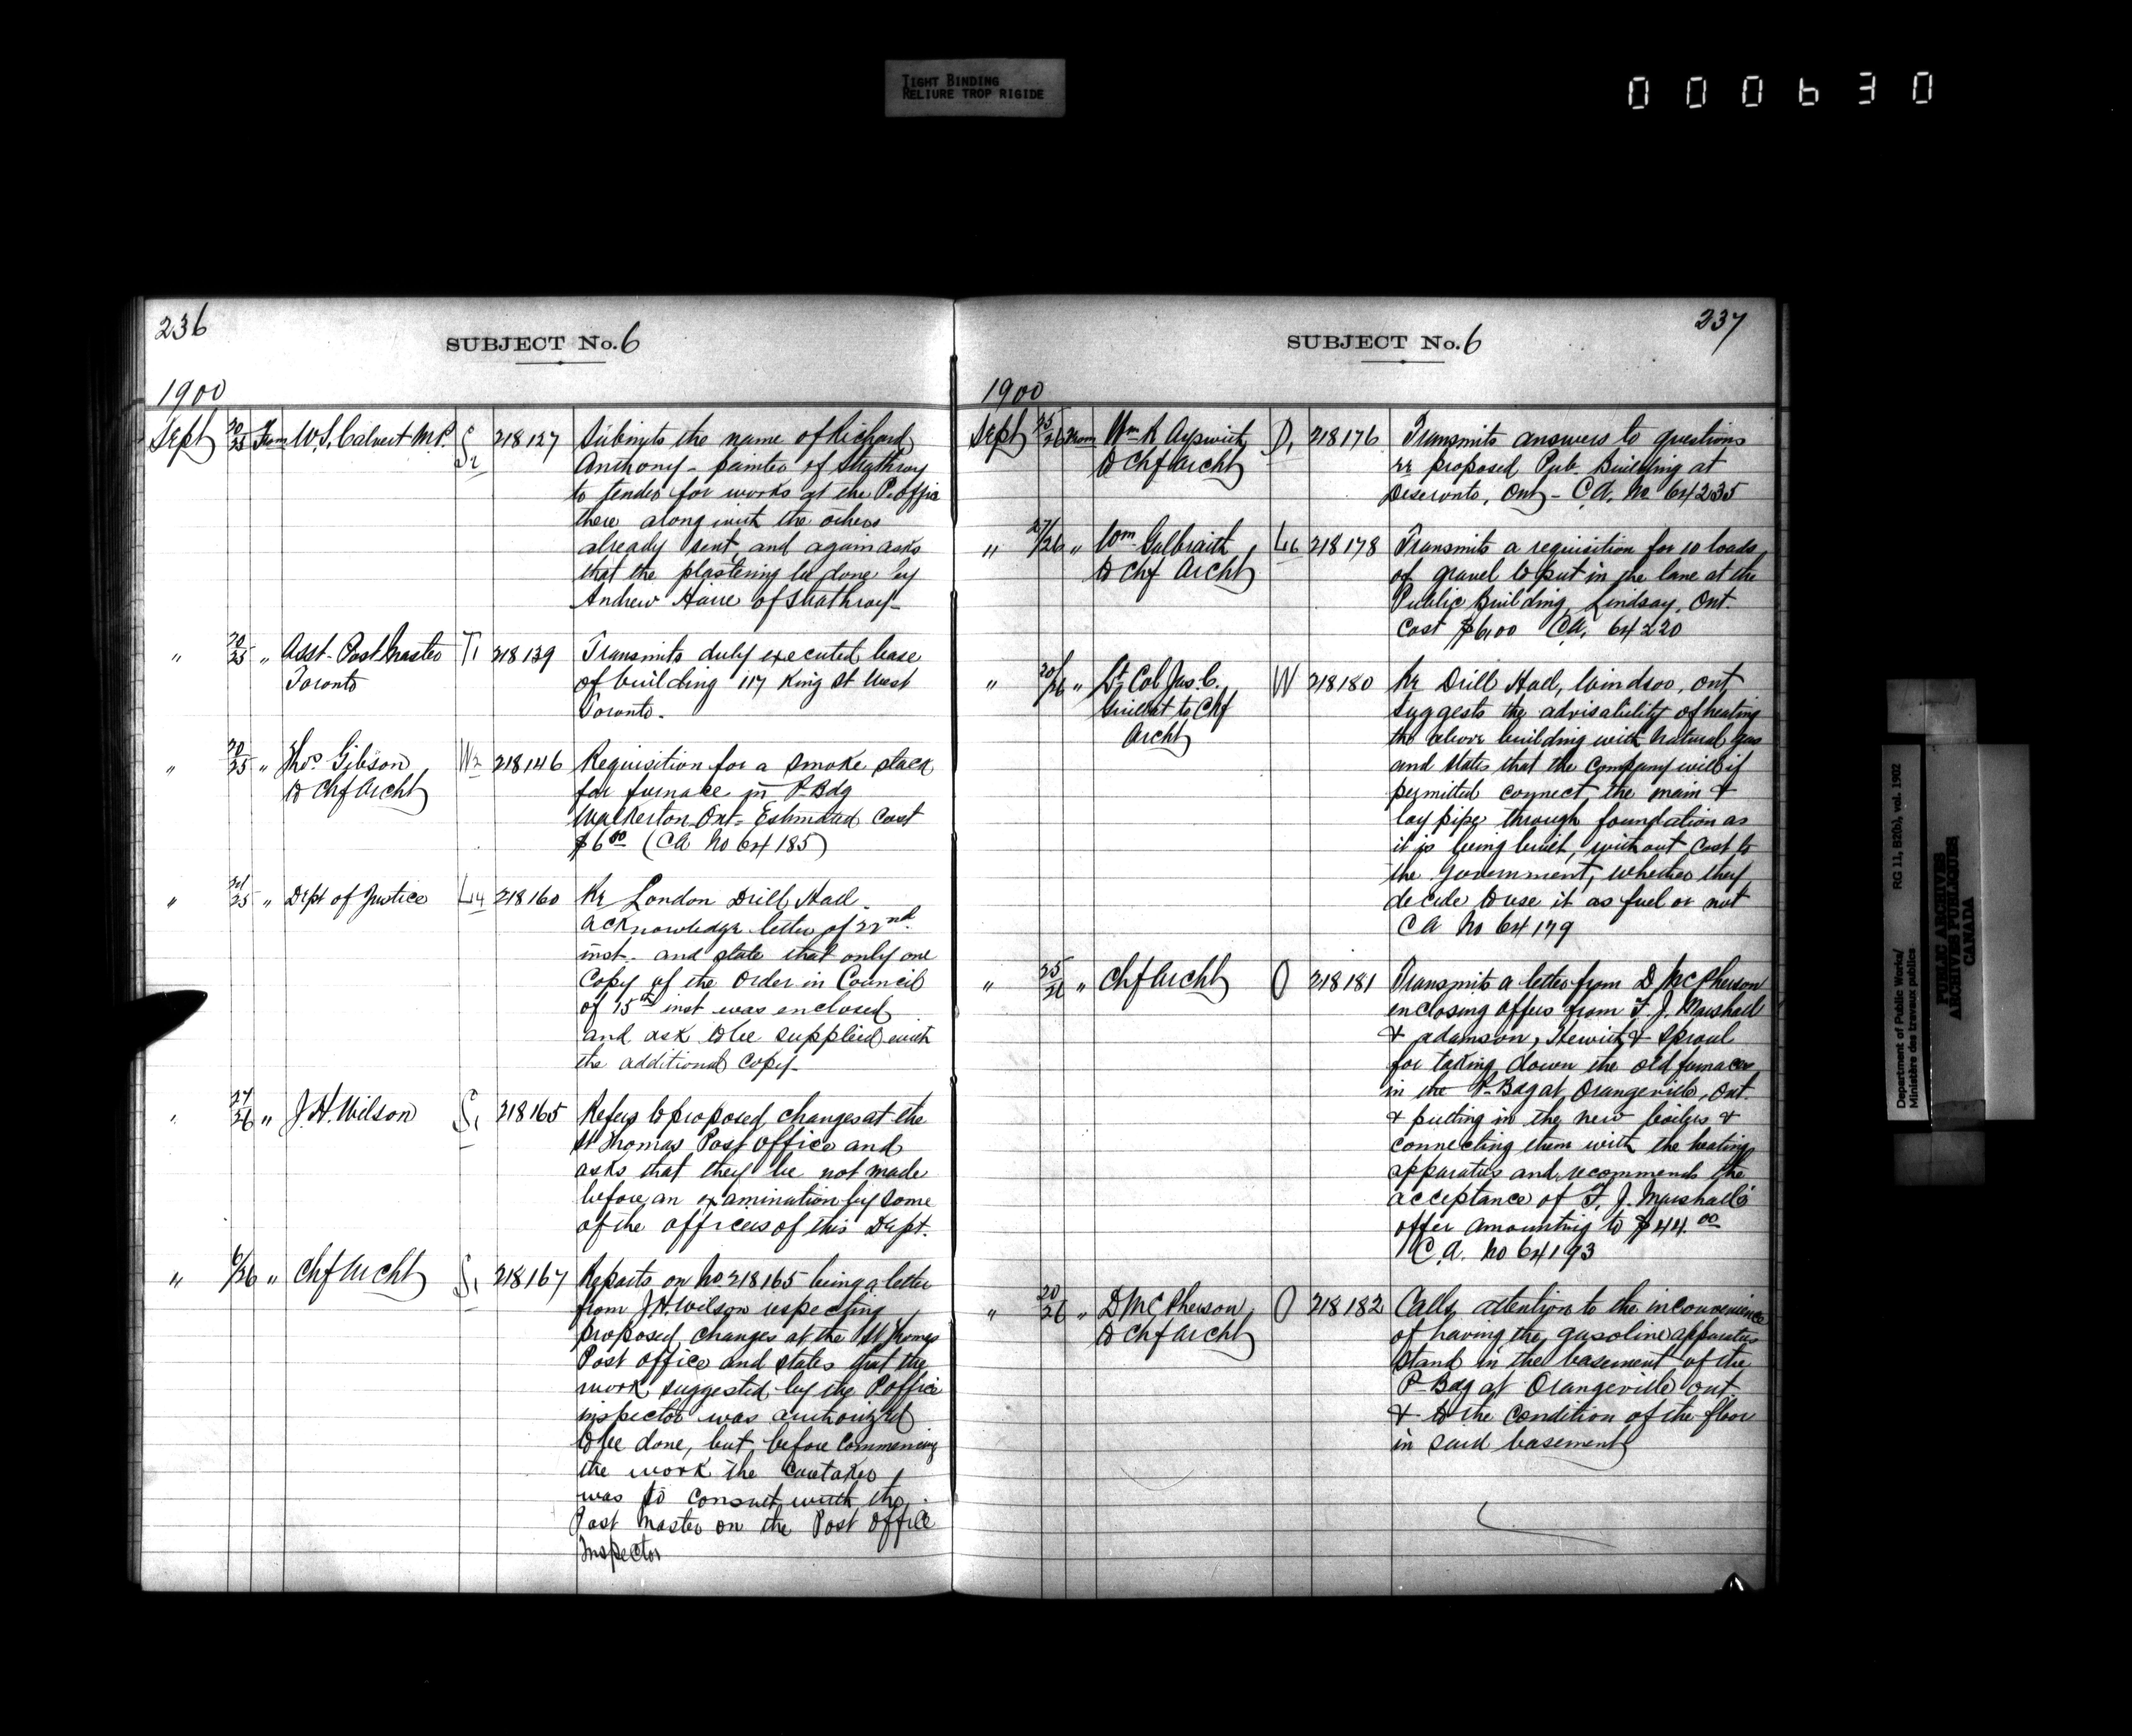 TIGHT BINDING
RELIURE TROP RIGIDE
000630
236
SUBJECT No. 6
1900
Sept 20/25 From W.S. Calvert M.P. S2 218127 Submits the name of Richard
Anthony - painter of Strathroy
to tender for works at the P. Office
there along with the others
already sent, and again asks
that the plastering be done by
Andrew of Strathroy -
" 20/25 " Asst. Post Master T1 218139 Transmits duly executed lease
Toronto of building 117 King St West
Toronto -
" 20/25 " Thos Gibson W2 218146 Requisition for a smoke stack
to Chf Archt for furnace in P. Bdg
Walkerton Ont - Estimated Cost
$6 00 (CA No 64185)
" 25 " Dept of Justice L4 218160 Re London Drill Hall -
acknowledge letter of 22nd
inst. and state that only one
Copy of the Order in Council
of 15th inst was enclosed
and ask to be supplied with
the additional Copy -
" 24/26 " J.H. Wilson S1 218165 Refers to proposed changes at the
St Thomas Post Office and
asks that they be not made
before an examination by some
of the officers of this Dept.
" 26 " Chf Archt S1 218167 Reports on No. 218165 being a letter
from J.H. Wilson respecting
proposed changes at the St Thomas
Post Office and states that the
work suggested by the P. Office
inspector was authorized
to be done, but before commencing
the work the Caretaker
was to consult with the
Post Master on the Post Office
Inspector
237
SUBJECT No. 6
1900
Sept 25/26 From Wm R D1 218176 Transmits answers to questions
to Chf Archt re proposed Pub. Building at
Deseronto, Ont - C.A. No 64235
" 26 " Wm Galbraith L6 218178 Transmits a requisition for 10 loads
to Chf Archt of gravel to put in the lane at the
Public Building, Lindsay, Ont.
Cost $6.00 CA. 64220
" 26 " Lt Col Jas. C. W 218180 Re Drill Hall, Windsor, Ont
Guillot to Chf suggests the advisability of heating
Archt the above building with natural gas
and states that the Company will if
permitted connect the main &
lay pipe through foundation as
it is being built, without cost to
the Government, whether they
decide to use it as fuel or not
CA No 64179
" 25/26 " Chf Archt O 218181 Transmits a letter from D McPherson
enclosing offers from F. J. Marshall
& Adamson, & Sproul
for taking down the old furnaces
in the P. Bdg at Orangeville, Ont.
& putting in the new boilers &
connecting them with the heating
apparatus and recommends the
acceptance of F. J. Marshall's
offer amounting to $44.00
C.A. No 64193
" 20/26 " D McPherson O 218182 Calls attention to the inconvenience
to Chf Archt of having the gasoline apparatus
stand in the basement of the
P. Bdg at Orangeville Ont
& to the condition of the floor
in said basement
Department of Public Works/
Ministère des travaux publics
RG 11, B2(b), vol. 1902
PUBLIC ARCHIVES
ARCHIVES PUBLIQUES
CANADA